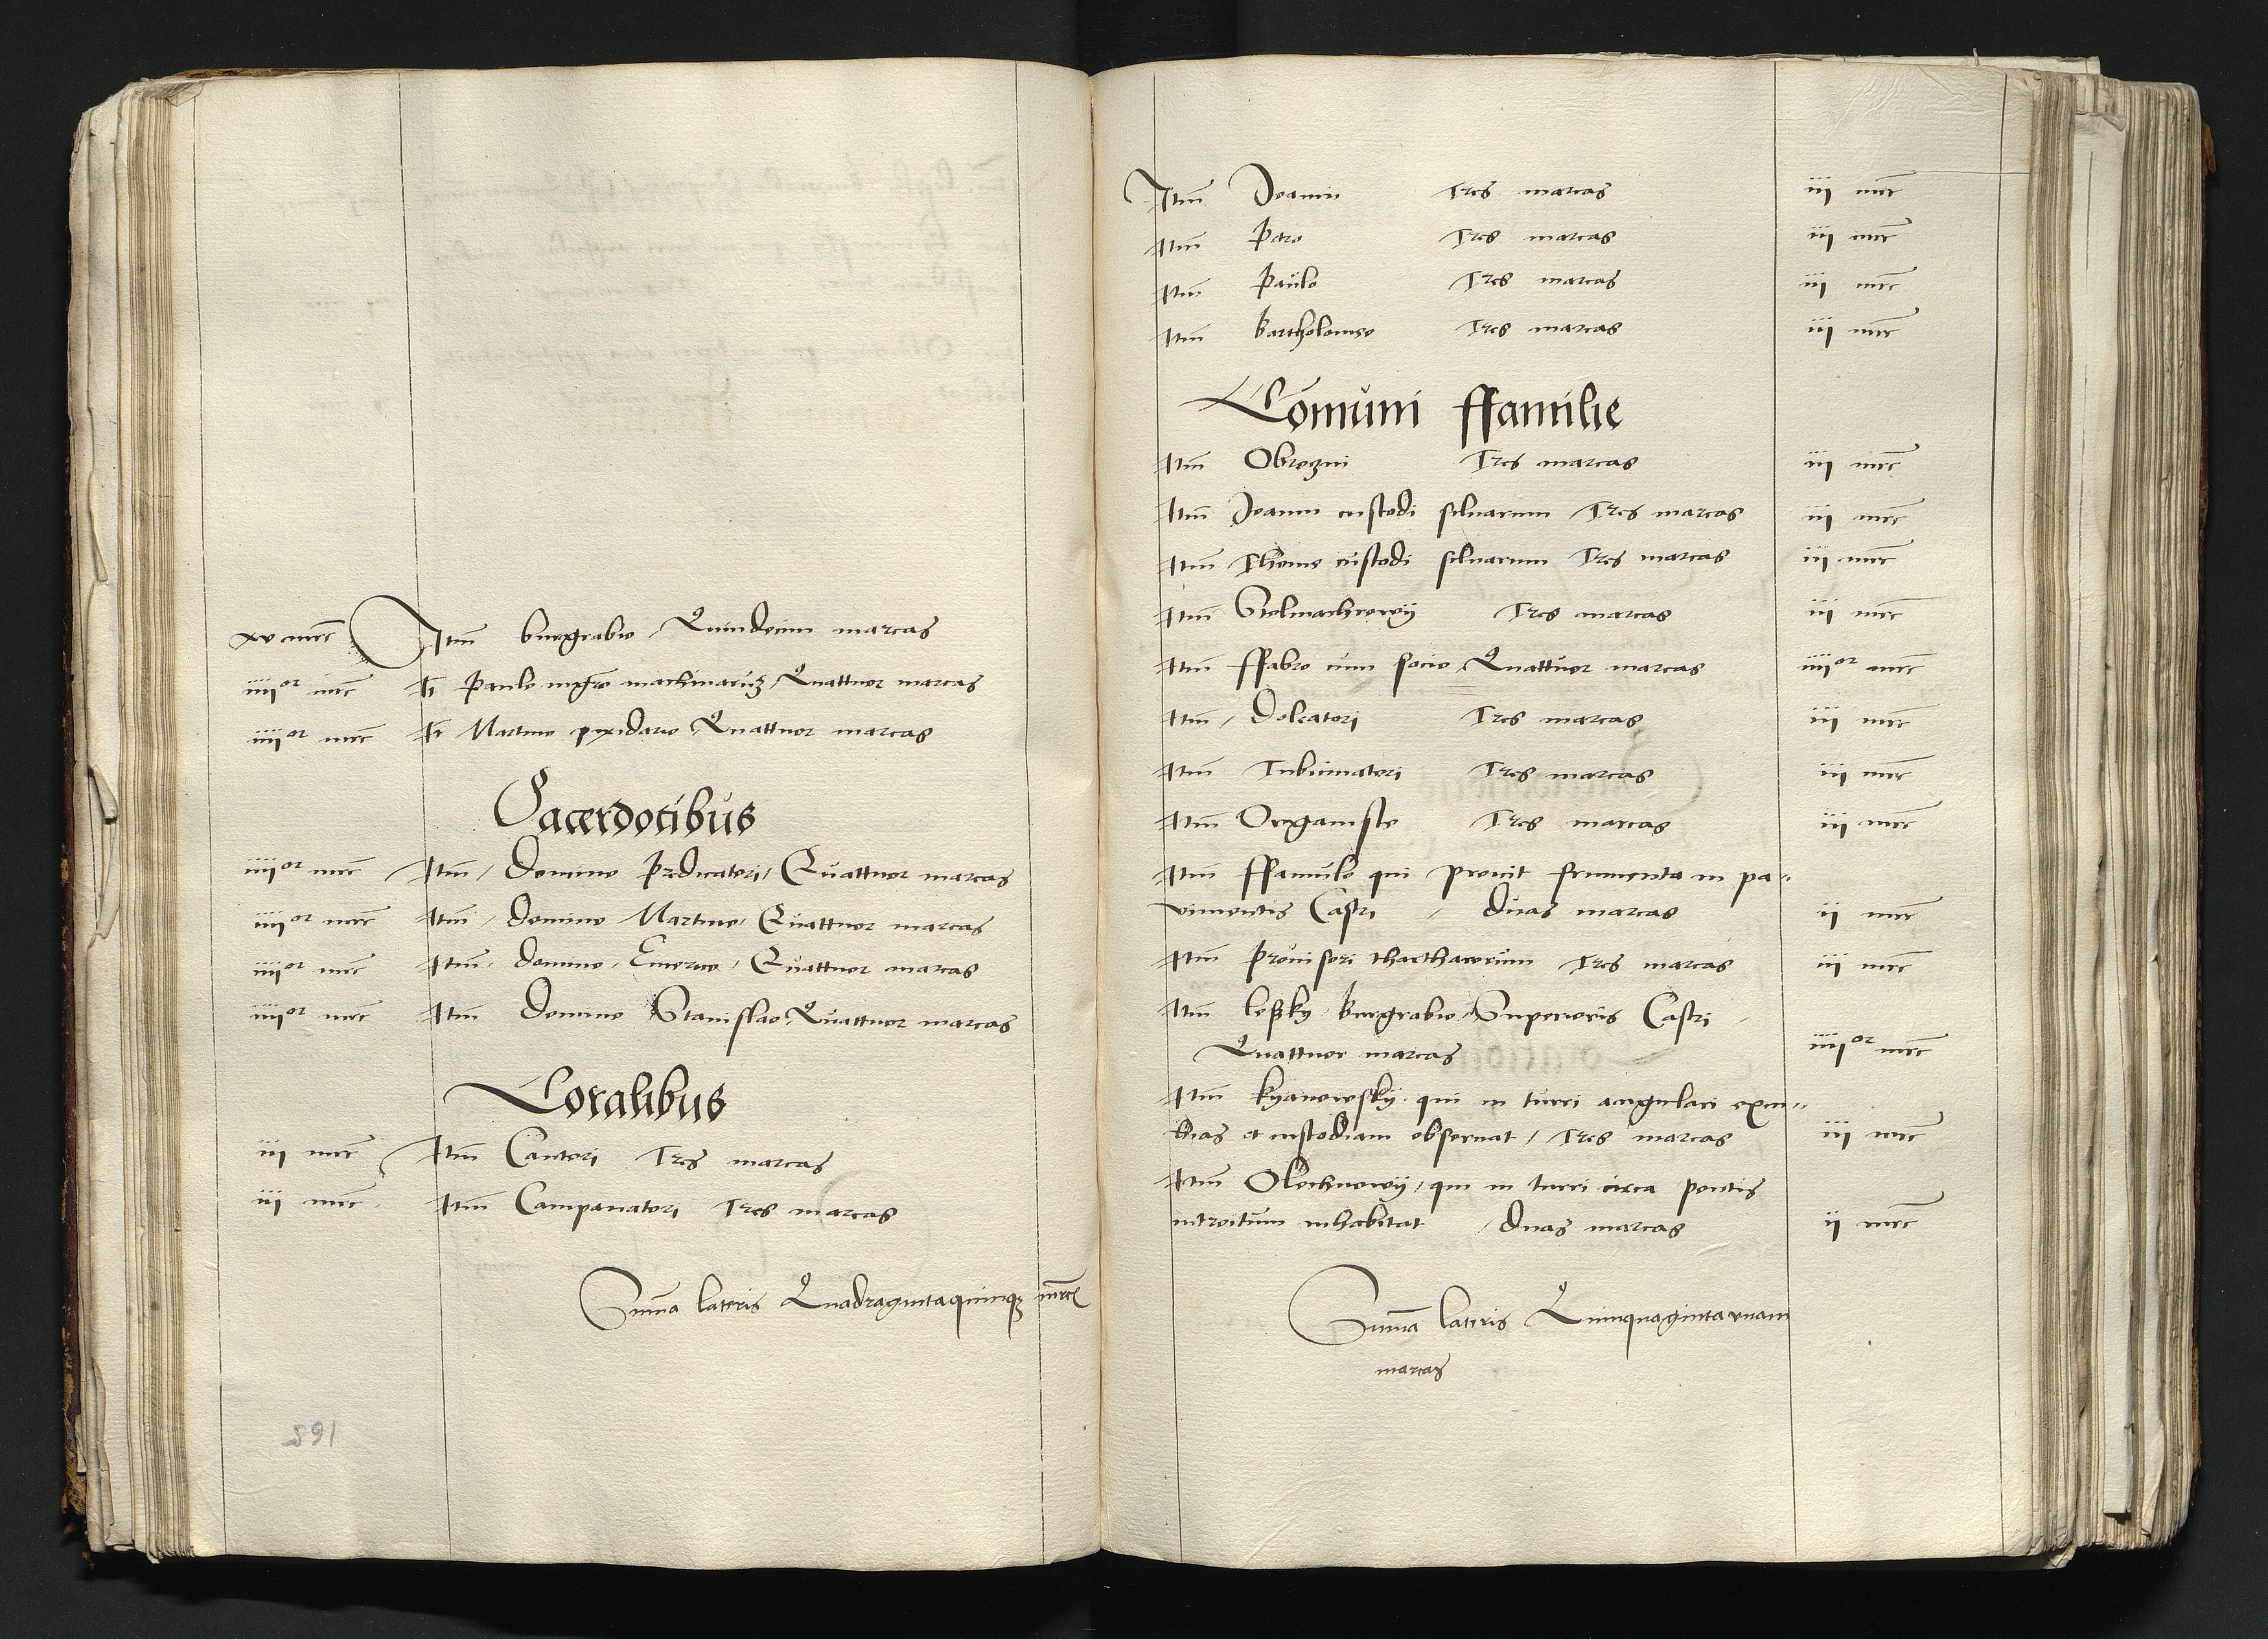 xv mrc Itm burgrabio Quindecim marcas
iiijor mrc It Paulo mgro machinaruz Quattuor marcas
iiijor mrc It Martino pixidario Quattuor marcas
Sacerdotibus
iiijor mrc Itm Domino Predicatori Quattuor marcas
iiijor mrc Itm domino Martino Quattuor marcas
iiijor mrc Itm domino Emerico Quattuor marcas
iiijor mrc Itm Domino Stanislao Quattuor marcas
Coralibus
iij mrc Itm Cantori Tres marcas
iij mrc Itm Campanatori Tres marcas
Suma lateris Quadragintaquinqz mrc
165
Itm Joanni Tres marcas iij mrc
Itm Petro Tres marcas iij mrc
Itm Paulo Tres marcas iij mrc
Itm bartholomeo Tres marcas iij mrc
Comuni ffamilie
Itm Obrozni Tres marcas iij mrc
Itm Joanni custodi siluarum Tres marcas iij mrc
Itm Thome custodi siluarum Tres marcas iij mrc
Itm Stolmachowij Tres marcas iij mrc
Itm ffabro cum socio Quattuor marcas iiijor mrc
Itm doleatori Tres marcas iij mrc
Itm Tubicinatori Tres marcas iij mrc
Itm Organiste Tres marcas iij mrc
Itm ffamulo qui proicit frumenta in pa-
vimentis Castri duas marcas ij mrc
Itm prouisori thartharorum Tres marcas iij mrc
Itm leßky burgrabio Superioris Castri
Quattuor marcas iiijor mrc
Itm kyanowsky qui in turri angulari excu-
bias et custodiam obseruat Tres marcas iij mrc
Itm Olechnowij qui in turri circa pontis
introitum inhabitat duas marcas ij mrc
Suma lateris Quinquagintavnam
marcas